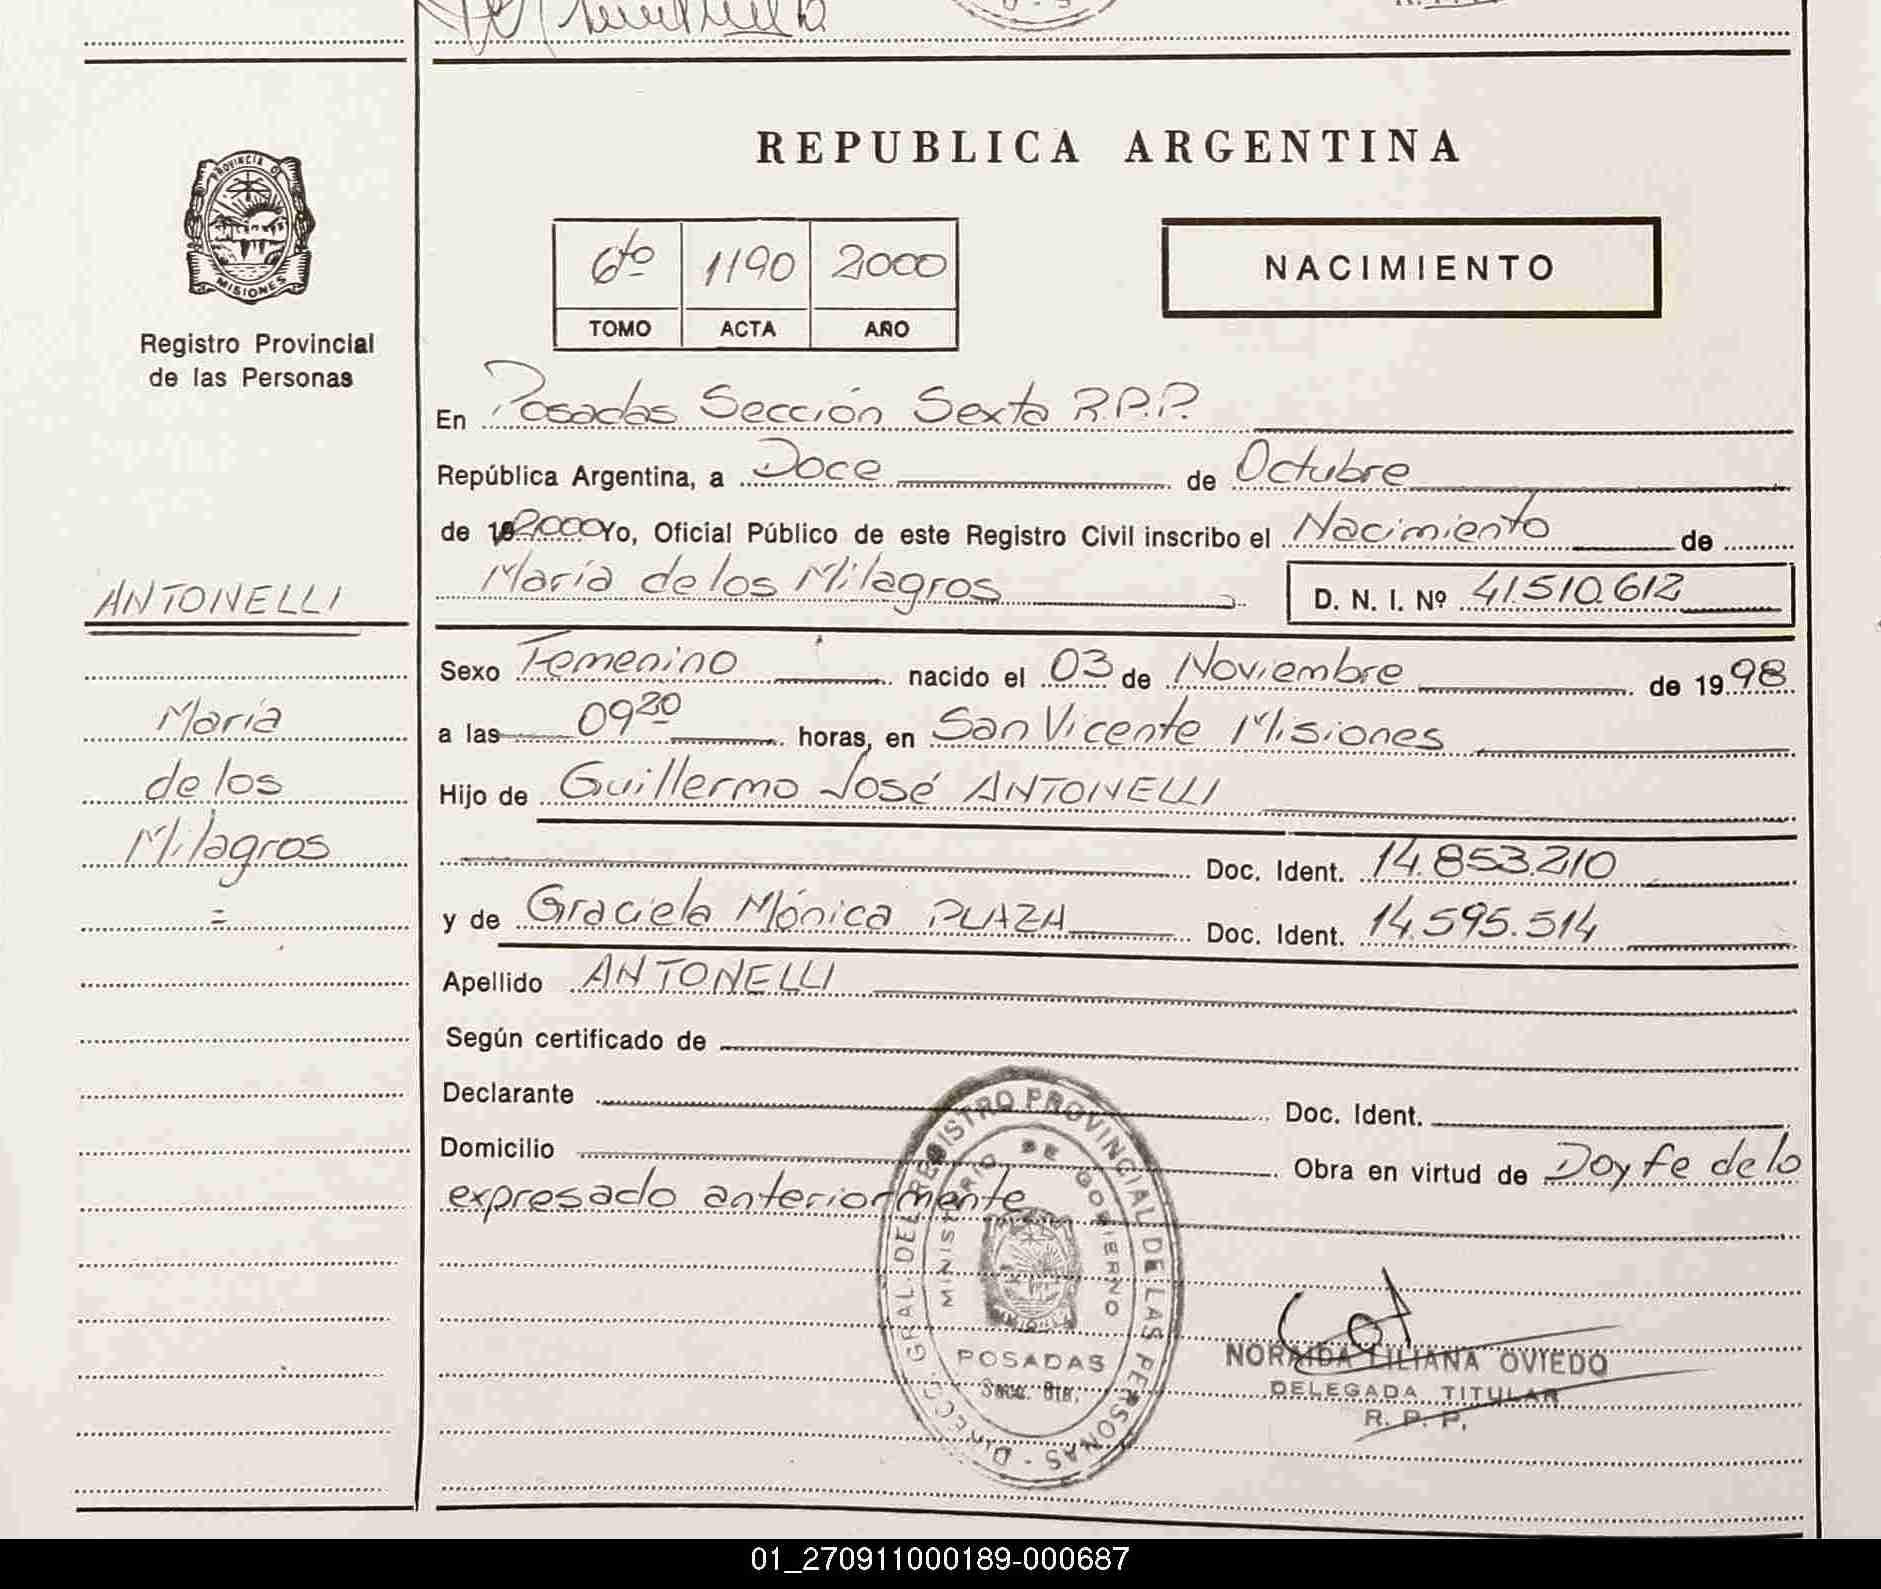 REPUBLICA ARGENTINA
PROVINCIA DE
MISIONES
Registro Provincial
de las Personas
6to 1190 2000
TOMO ACTA AÑO
NACIMIENTO
En Posadas Sección Sexta R.P.P.
República Argentina, a Doce de Octubre
de 2000 Yo, Oficial Público de este Registro Civil inscribo el Nacimiento de
María de los Milagros D. N. I. Nº 41.510.612
ANTONELLI
María
de los
Milagros
=
Sexo Femenino nacido el 03 de Noviembre de 1998
a las 09 20 horas, en San Vicente Misiones
Hijo de Guillermo José ANTONELLI
Doc. Ident. 14.853.210
y de Graciela Mónica PLAZA Doc. Ident. 14.595.514
Apellido ANTONELLI
Según certificado de
Declarante Doc. Ident.
Domicilio Obra en virtud de Doy fe de lo
expresado anteriormente
DIRECC. GRAL. DEL REGISTRO PROVINCIAL DE LAS PERSONAS -
MINISTERIO DE GOBIERNO
POSADAS
Secc. 6ta.
LILIANA OVIEDO
DELEGADA TITULAR
R. P. P.
01_270911000189-000687